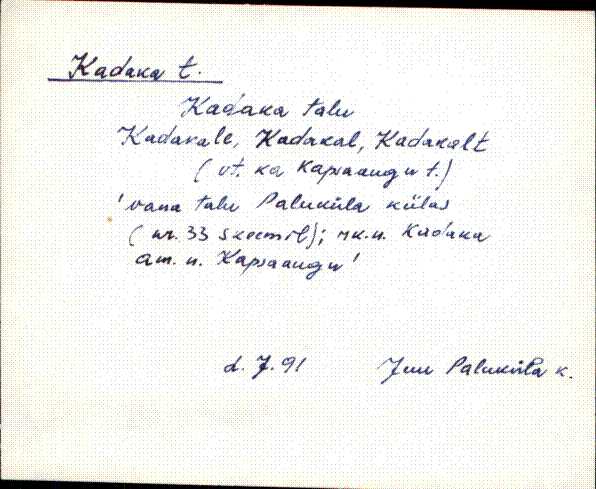 Kadaka t.
Kadaka talu
Kadakale, Kadakal, Kadakalt
( vt. ka Kapsaaugu t.)
'vana talu Paluküla külas
( nr. 33 skeemil); rk.n. Kadaka
am. n. Kapsaaugu'
d. J. 91 Juu Paluküla k.